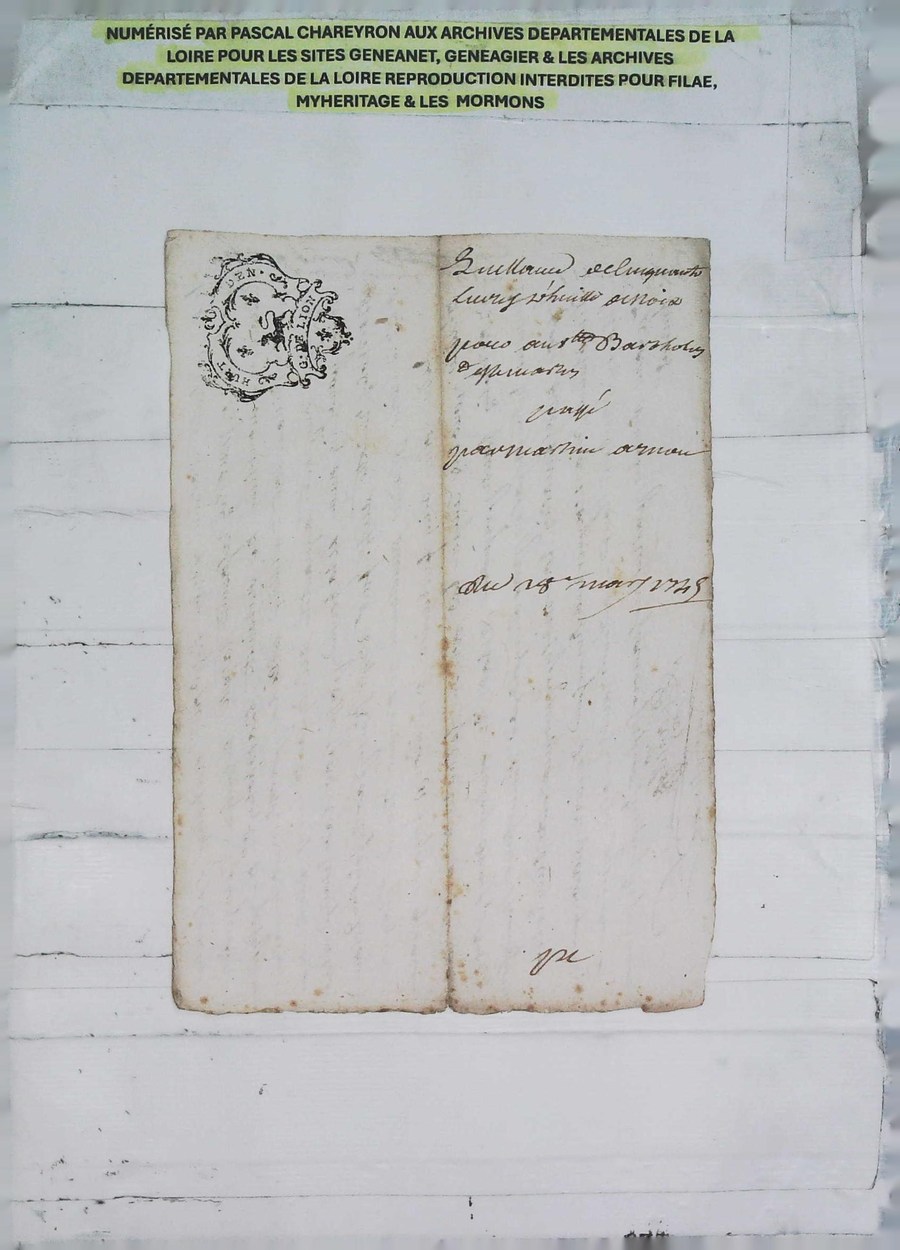 NUMÉRISÉ PAR PASCAL CHAREYRON AUX ARCHIVES DEPARTEMENTALES DE LA
LOIRE POUR LES SITES GENEANET, GENEAGIER & LES ARCHIVES
DEPARTEMENTALES DE LA LOIRE REPRODUCTION INTERDITES POUR FILAE,
MYHERITAGE & LES MORMONS
G. DE LION
DEN
Quittance de Cinquante
Livres d'huille de Noix
pour Barthelemy
passé
par martin arnou
du 18e mars 1745